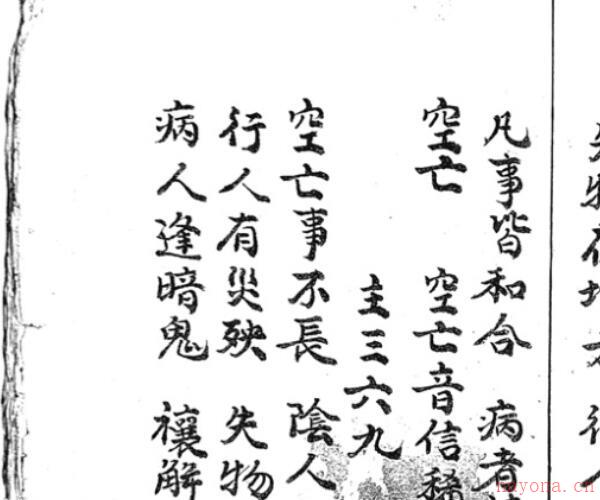 凡事皆和合 病者
空亡 空亡音信稀
主三六九
空亡事不長 陰人
行人有災殃 失物
病人逢暗鬼 禳解
nayona.cn